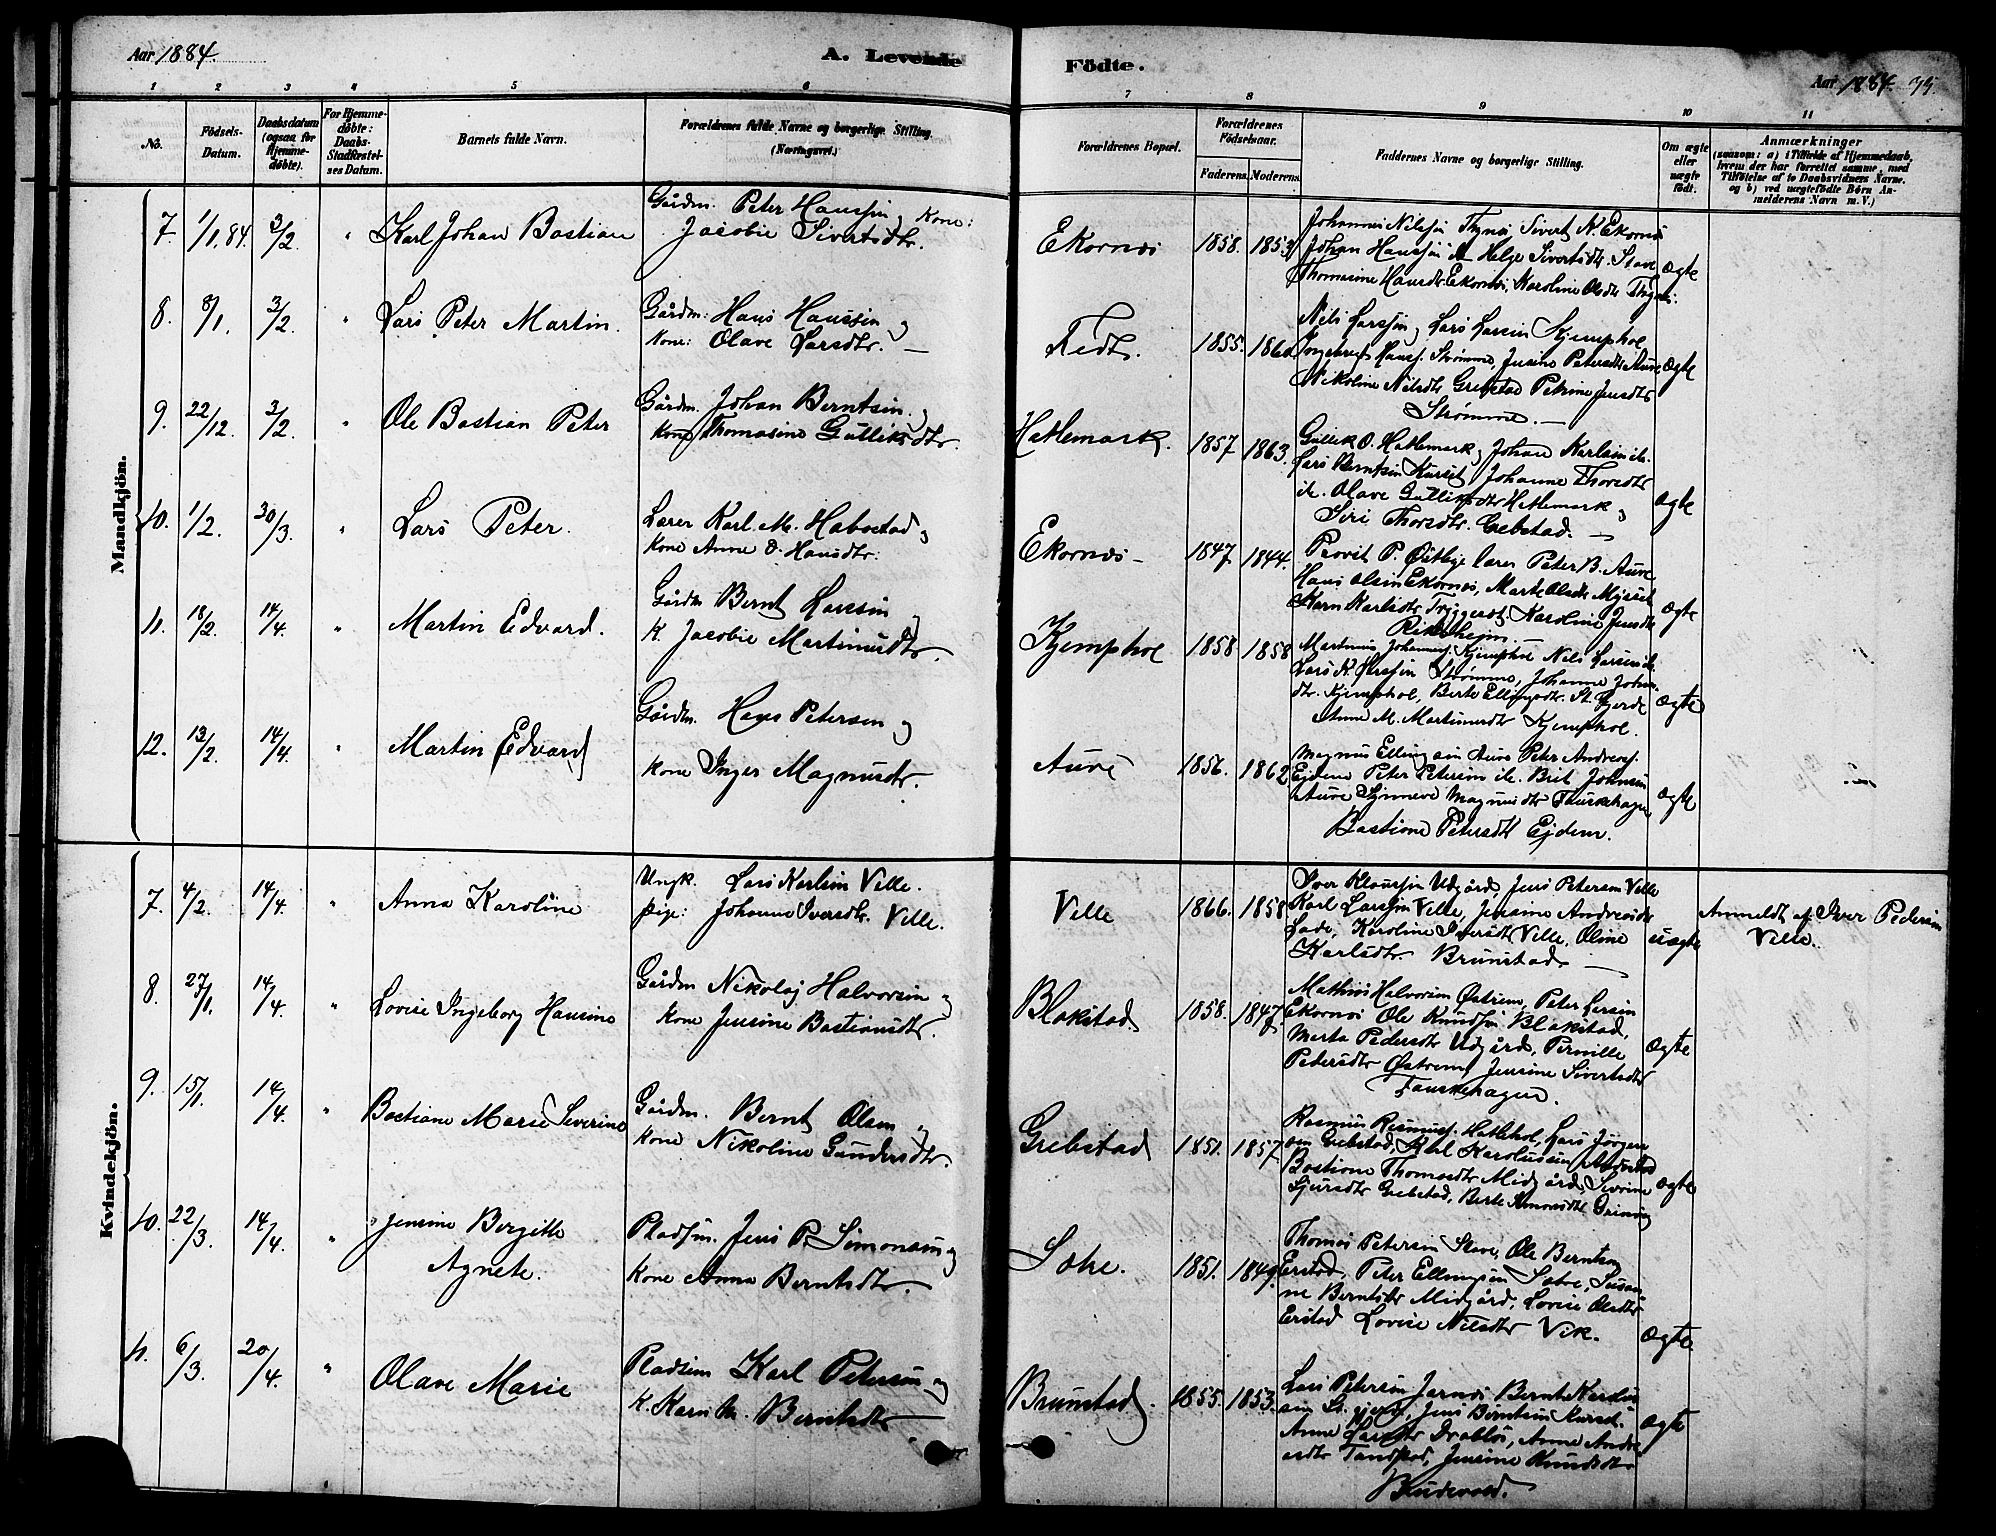 Aar 1884.
A. Levende
Födte.
Aar 1884.
1 2 3 4 5 6 7 8 9 10 11
No.
Födsels-Datum.
Daabsdatum (ogsaa for Hjemme-døbte).
For Hjemme-døbte: Daabs-Stadfæstel-ses Datum.
Barnets fulde Navn.
Forældrenes fulde Navne og borgerlige Stilling. (Næringsvei.)
Forældrenes Bopæl.
Forældrenes Födselsaar.
Faderens. Moderens.
Faddernes Navne og borgerlige Stilling.
Om ægte eller uægte født.
Anmærkninger
(saasom: a) i Tilfælde af Hjemmedaab, hvem der har forrettet samme, med Tilföielse af to Daabsvidners Navne, og b) ved uægtefödte Börn An-melderens Navn m. V.)
Mandkjön.
7. 1/1.84. 3/2 " Karl Johan Bastian
Gårdm. Peter Hanssøn og Kone:
Jacobie Sivertsdtr.
Ekornæs 1858. 1853
Johannes Nilssøn Thynæs Sivert K. Ekornæs
Johan Hanssøn Helge Sivertsdtr. Slave
Thomasine Hansdtr. Ekornæs, Karoline Olsdtr
ægte
8. 8/1. 3/2 " Lars Peter Martin.
Gårdm: Hans Hanssøn og
Kone: Olave Larsdtr. —
Tedt. 1855. 1860
Nils Larssøn, Lars Larsen Kjemphol
Ingebret Hanss. Strømme, Jensine Petersdtr Aure,
Nikoline Nilsdtr Grebstad Petrine Jensdtr
Strømme. —
ægte
9. 22/12. 3/2 " Ole Bastian Peter
Gårdm. Johan Berntsen og
Kone Thomasine Gulliksdtr.
Hatlemark. 1857 1863.
Gullik O. Hatlemark, Johan Karlsen ib.
Lars Berntsen Kurset, Johanne Thoresdtr
ib. Olave Gulliksdtr Hatlemark og
Siri Thorsdtr. Grebstad. —
ægte
10. 1/2. 30/3 " Lars Peter.
Lærer Karl. M. Habostad og
Kone Anne O. Hansdtr.
Ekornæs — 1847. 1844.
Provst P. lærer Peter B. Aure
Hans Olsen Ekornæs, Marte Olsdtr Myrset
Karn Karlsdtr Tryggestd, Karoline Jensdtr
Rikesheim. —
ægte
11. 18/2. 14/4. " Martin Edvard.
Gårdm Bernt Larssøn og
K. Jacobie Martinusdtr.
Kjemphol 1858 1858
Martinus Johanness. Kjemphol Nils Larsen ib.
Lars K. Larssøn Strømme, Johanne Johns.
dtr. Kjemphol, Berte Ellingsdtr. St. Gjerde
Anne M. Martinusdtr Kjemphol.
ægte
12. 13/2. 14/4. " Martin Edvard
Gårdm. Hans Petersen og
Kone Inger Magnusdtr.
Aure 1856. 1862
Magnus Ellingsen Aure Peter Andreas.
Ejdem Peter Petersen ib. Brit Johnsen
Aure Synneve Magnusdtr Fauskehagen
Bastiane Petersdtr Ejdem.
ægte
Kvindekjön.
7. 4/2. 14/4. " Anna Karoline
Ungk. Lars Karlsen Velle.
Pige: Johanne Iversdtr. Velle.
Velle 1866. 1858
Iver Klaussøn Udgård, Jens Petersen Velle
Karl Larssøn Velle, Jensine Andreasdtr
Lade, Karoline Iversdtr Velle. Oline
Karlsdtr. Brunstad. —
uægte
Anmeldt af Iver Pedersen
Velle.
8. 27/1. 14/4. " Lovise Ingeborg Hansine
Gårdm Nikolaj Halvorsen og
Kone Jensine Bastiansdtr.
Blakstad 1858. 1847.
Mathias Halvorsen Østrem, Peter Larsen
Ekornæs Ole Knudssøn Blakstad,
Marta Pedersdtr Udgård, Pernille
Pedersdtr Østrem, Jensine Sivertsdtr
Fauskehagen.
ægte
9. 15/1. 14/4. " Bastiane Marie Severine
Gårdm. Bernt Olsen og
Kone Nikoline Gundersdtr.
Grebstad 1851. 1857.
Rasmus Rasmuss. Hatlehol, Lars Jørgens
sen Grebstad, Karl Karolussen Andestad
Bastiane Thomasdtr Midgård, Severine
Sjursdtr Grebstad, Berte
ægte
10. 22/3. 14/4. " Jensine Bergitte
Agnete.
Pladsm. Jens P. Simonsen og
Kone Anna Berntsdtr.
Søhre. 1851. 1849.
Thomas Petersen Slave, Ole Berntsen
Erstad, Peter Ellingsen Søhre, Susan-
ne Berntsdtr Midgård, Lovise Olsdtr
Erstad Lovise Nilsdtr Vik.
ægte
11. 6/3. 20/4. " Olave Marie
Pladsm Karl Petersen og
K. Karn M. Berntsdtr
Brunstad. 1855. 1853.
Lars Petersen Jarnæs Bernt Karolus
sen St. gjerde, Jens Berntsen Kurset
Anne Larsdtr Drabløs, Anne Andre
asdtr Tandstad, Jensine Knudsdtr
ægte